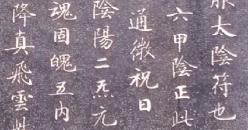 太陰符也
六甲陰正此
通微祝曰
陰陽二炁元
魂固魄五内
降真飛雲